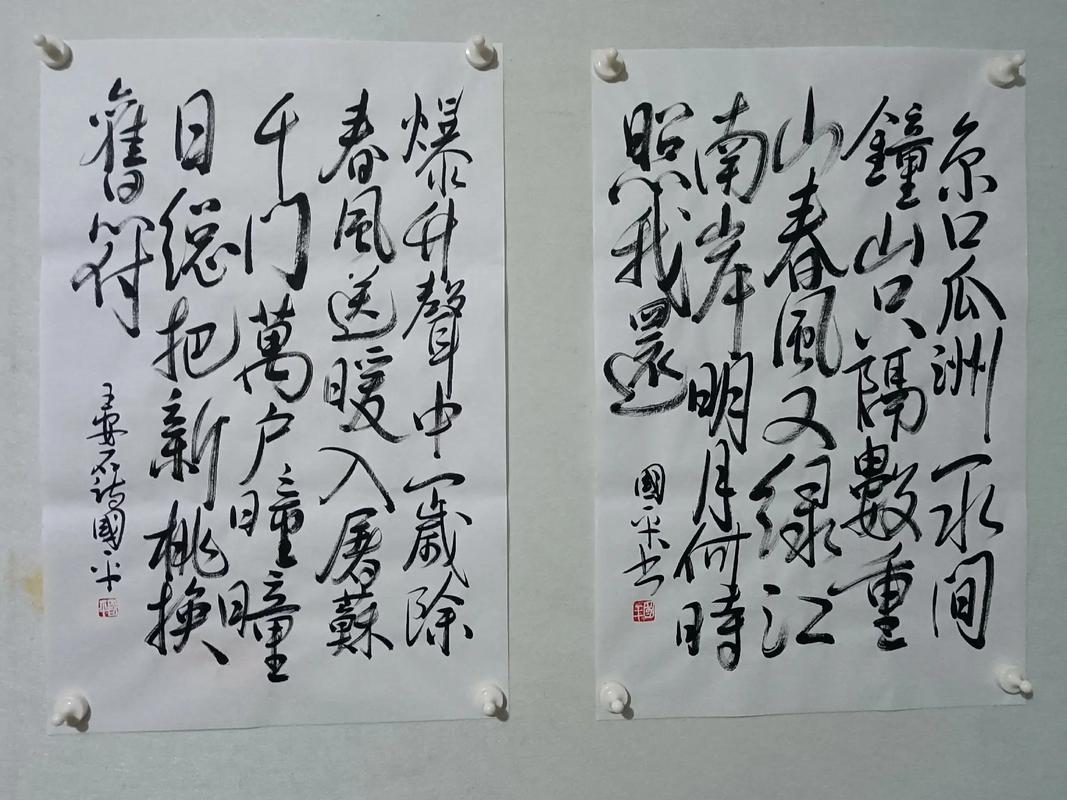 京口瓜洲一水間
鐘山只隔數重
山春風又綠江
南岸明月何時
照我還
國平书
爆竹聲中一歲除
春風送暖入屠蘇
千門萬户曈曈
日總把新桃換
舊符
王安石詩國平